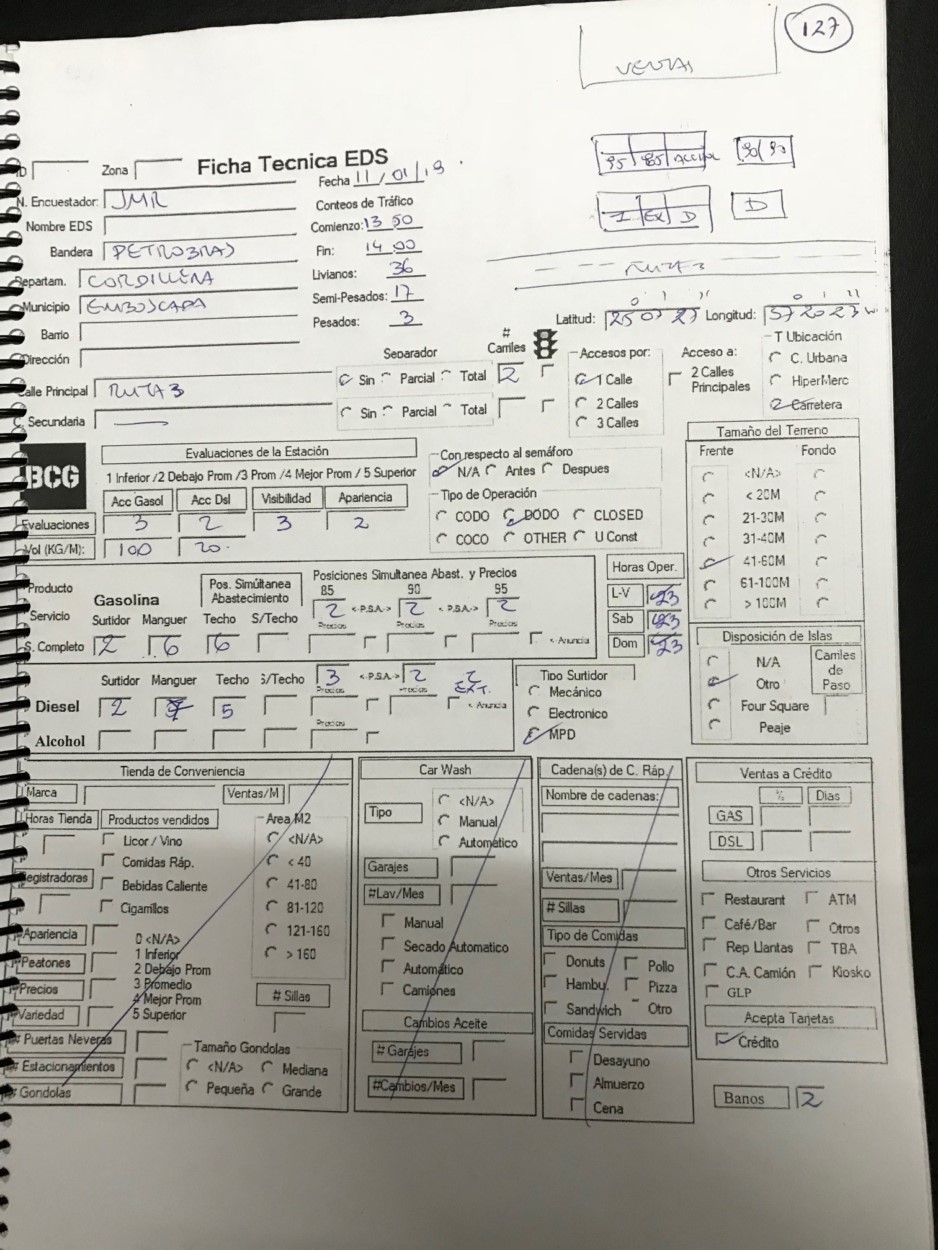 127
VENTAS
95 85
90 90
I Ex D D
RUTA 3
ID Zona Ficha Tecnica EDS
Fecha 11/01/19
N. Encuestador: JMR
Conteos de Tráfico
Nombre EDS
Comienzo: 13 50
Bandera PETROBRAS
Fin: 14 00
Departam. CORDILLERA
Livianos: 36
Municipio EMBOSCADA
Semi-Pesados: 17
Barrio
Pesados: 3
Latitud: 25 07 27 Longitud: 57 20 27 W
Dirección
Calle Principal RUTA 3
C. Secundaria —
Separador # Carriles
Sin Parcial Total 2
Sin Parcial Total
Accesos por:
1 Calle
2 Calles
3 Calles
Acceso a:
2 Calles Principales
T Ubicación
C. Urbana
HiperMerc
Carretera
BCG
Evaluaciones de la Estación
1 Inferior /2 Debajo Prom /3 Prom /4 Mejor Prom / 5 Superior
Acc Gasol Acc Dsl Visibilidad Apariencia
Evaluaciones 3 2 3 2
Vol (KG/M): 100 20.
Con respecto al semáforo
N/A Antes Despues
Tipo de Operación
CODO DODO CLOSED
COCO OTHER U Const
Tamaño del Terreno
Frente Fondo
<N/A>
< 20M
21-30M
31-40M
41-60M
61-100M
> 100M
Producto
Gasolina
Pos. Simúltanea Abastecimiento
Posiciones Simultanea Abast. y Precios
85 90 95
2 <-P.S.A.-> 2 <-P.S.A.-> 2
Servicio Surtidor Manguer Techo S/Techo Precios Precios Precios
S. Completo 2 6 6 <- Anuncia
Horas Oper.
L-V 23
Sab 23
Dom 23
Surtidor Manguer Techo S/Techo 3 <-P.S.A.-> 2 2 EXT.
Precios Precios <- Anuncia
Diesel 2 5
Precios
Alcohol
Tipo Surtidor
Mecánico
Electronico
MPD
Disposición de Islas
N/A
Otro
Four Square
Peaje
Carriles de Paso
Tienda de Conveniencia
Marca Ventas/M
Horas Tienda Productos vendidos
Licor / Vino
Comidas Ráp.
Registradoras
Bebidas Caliente
Cigarrillos
Area M2
<N/A>
< 40
41-80
81-120
121-160
> 160
Apariencia
Peatones
Precios
Variedad
0 <N/A>
1 Inferior
2 Debajo Prom
3 Promedio
4 Mejor Prom
5 Superior
# Sillas
# Puertas Neveras
# Estacionamientos
# Gondolas
Tamaño Gondolas
<N/A> Mediana
Pequeña Grande
Car Wash
Tipo
<N/A>
Manual
Automático
Garajes
#Lav/Mes
Manual
Secado Automatico
Automático
Camiones
Cambios Aceite
# Garajes
#Cambios/Mes
Cadena(s) de C. Ráp.
Nombre de cadenas:
Ventas/Mes
# Sillas
Tipo de Comidas
Donuts Pollo
Hambu. Pizza
Sandwich Otro
Comidas Servidas
Desayuno
Almuerzo
Cena
Ventas a Crédito
% Dias
GAS
DSL
Otros Servicios
Restaurant ATM
Café/Bar Otros
Rep Llantas TBA
C.A. Camión Kiosko
GLP
Acepta Tarjetas
Crédito
Banos 2